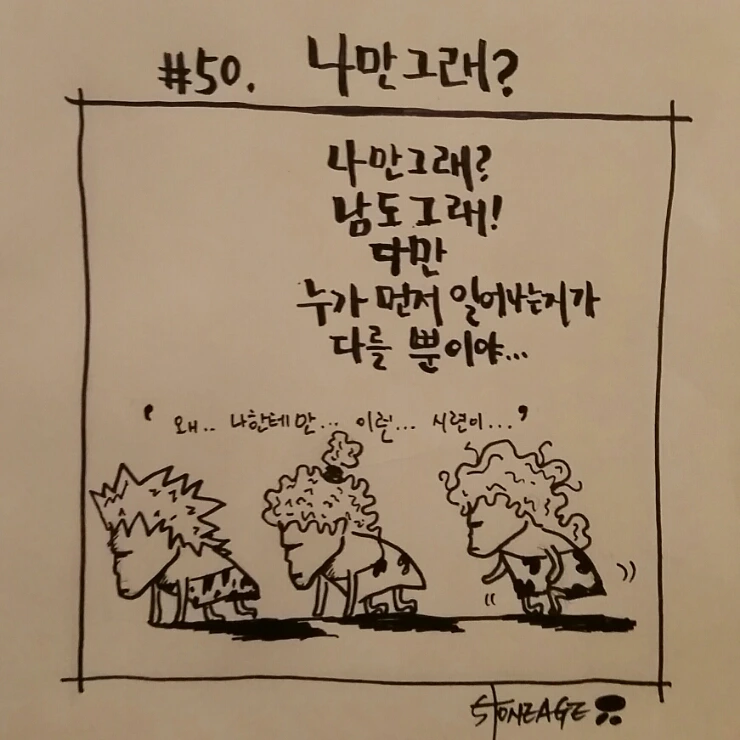 #50. 나만그래?
나만그래?
남도그래!
다만
누가 먼저 일어나는지가
다를 뿐이야...
' 왜.. 나한테만... 이런... 시련이...'
STONEAGE